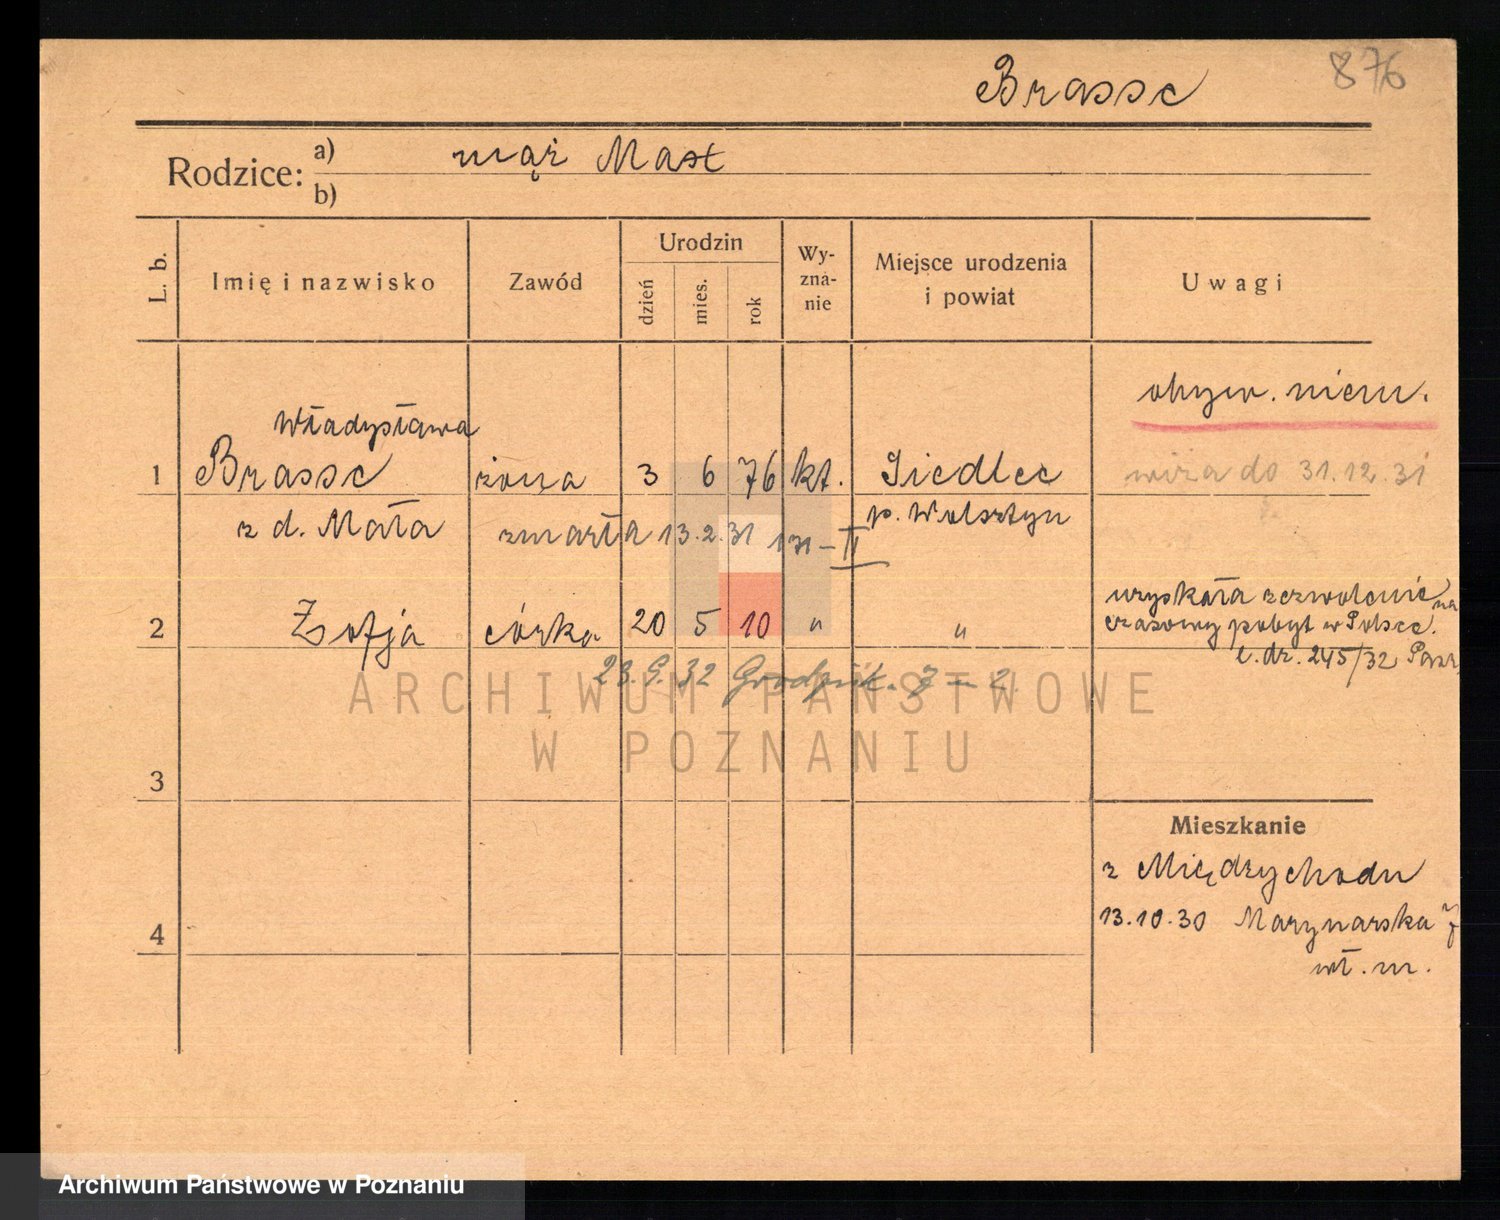 Brasse 876
Rodzice: a) mąż Mast
b)
L. b. Imię i nazwisko Zawód Urodzin dzień mies. rok Wy-zna-nie Miejsce urodzenia i powiat Uwagi
obyw. niem.
Władysława
1 Brasse żona 3 6 76 kt. Siedlec wiza do 31.12.31
z d. Mała p. Wolsztyn
zmarła 13.2.31 131-II
uzyskała zezwolenie na
2 Zofja córka 20 5 10 " " czasowy pobyt w Polsce.
l. dz. 245/32
23.9.32 7-2
ARCHIWUM PAŃSTWOWE
W POZNANIU
3
Mieszkanie
z Międzychodu
13.10.30 Marynarska 7
4
wł. m.
Archiwum Państwowe w Poznaniu